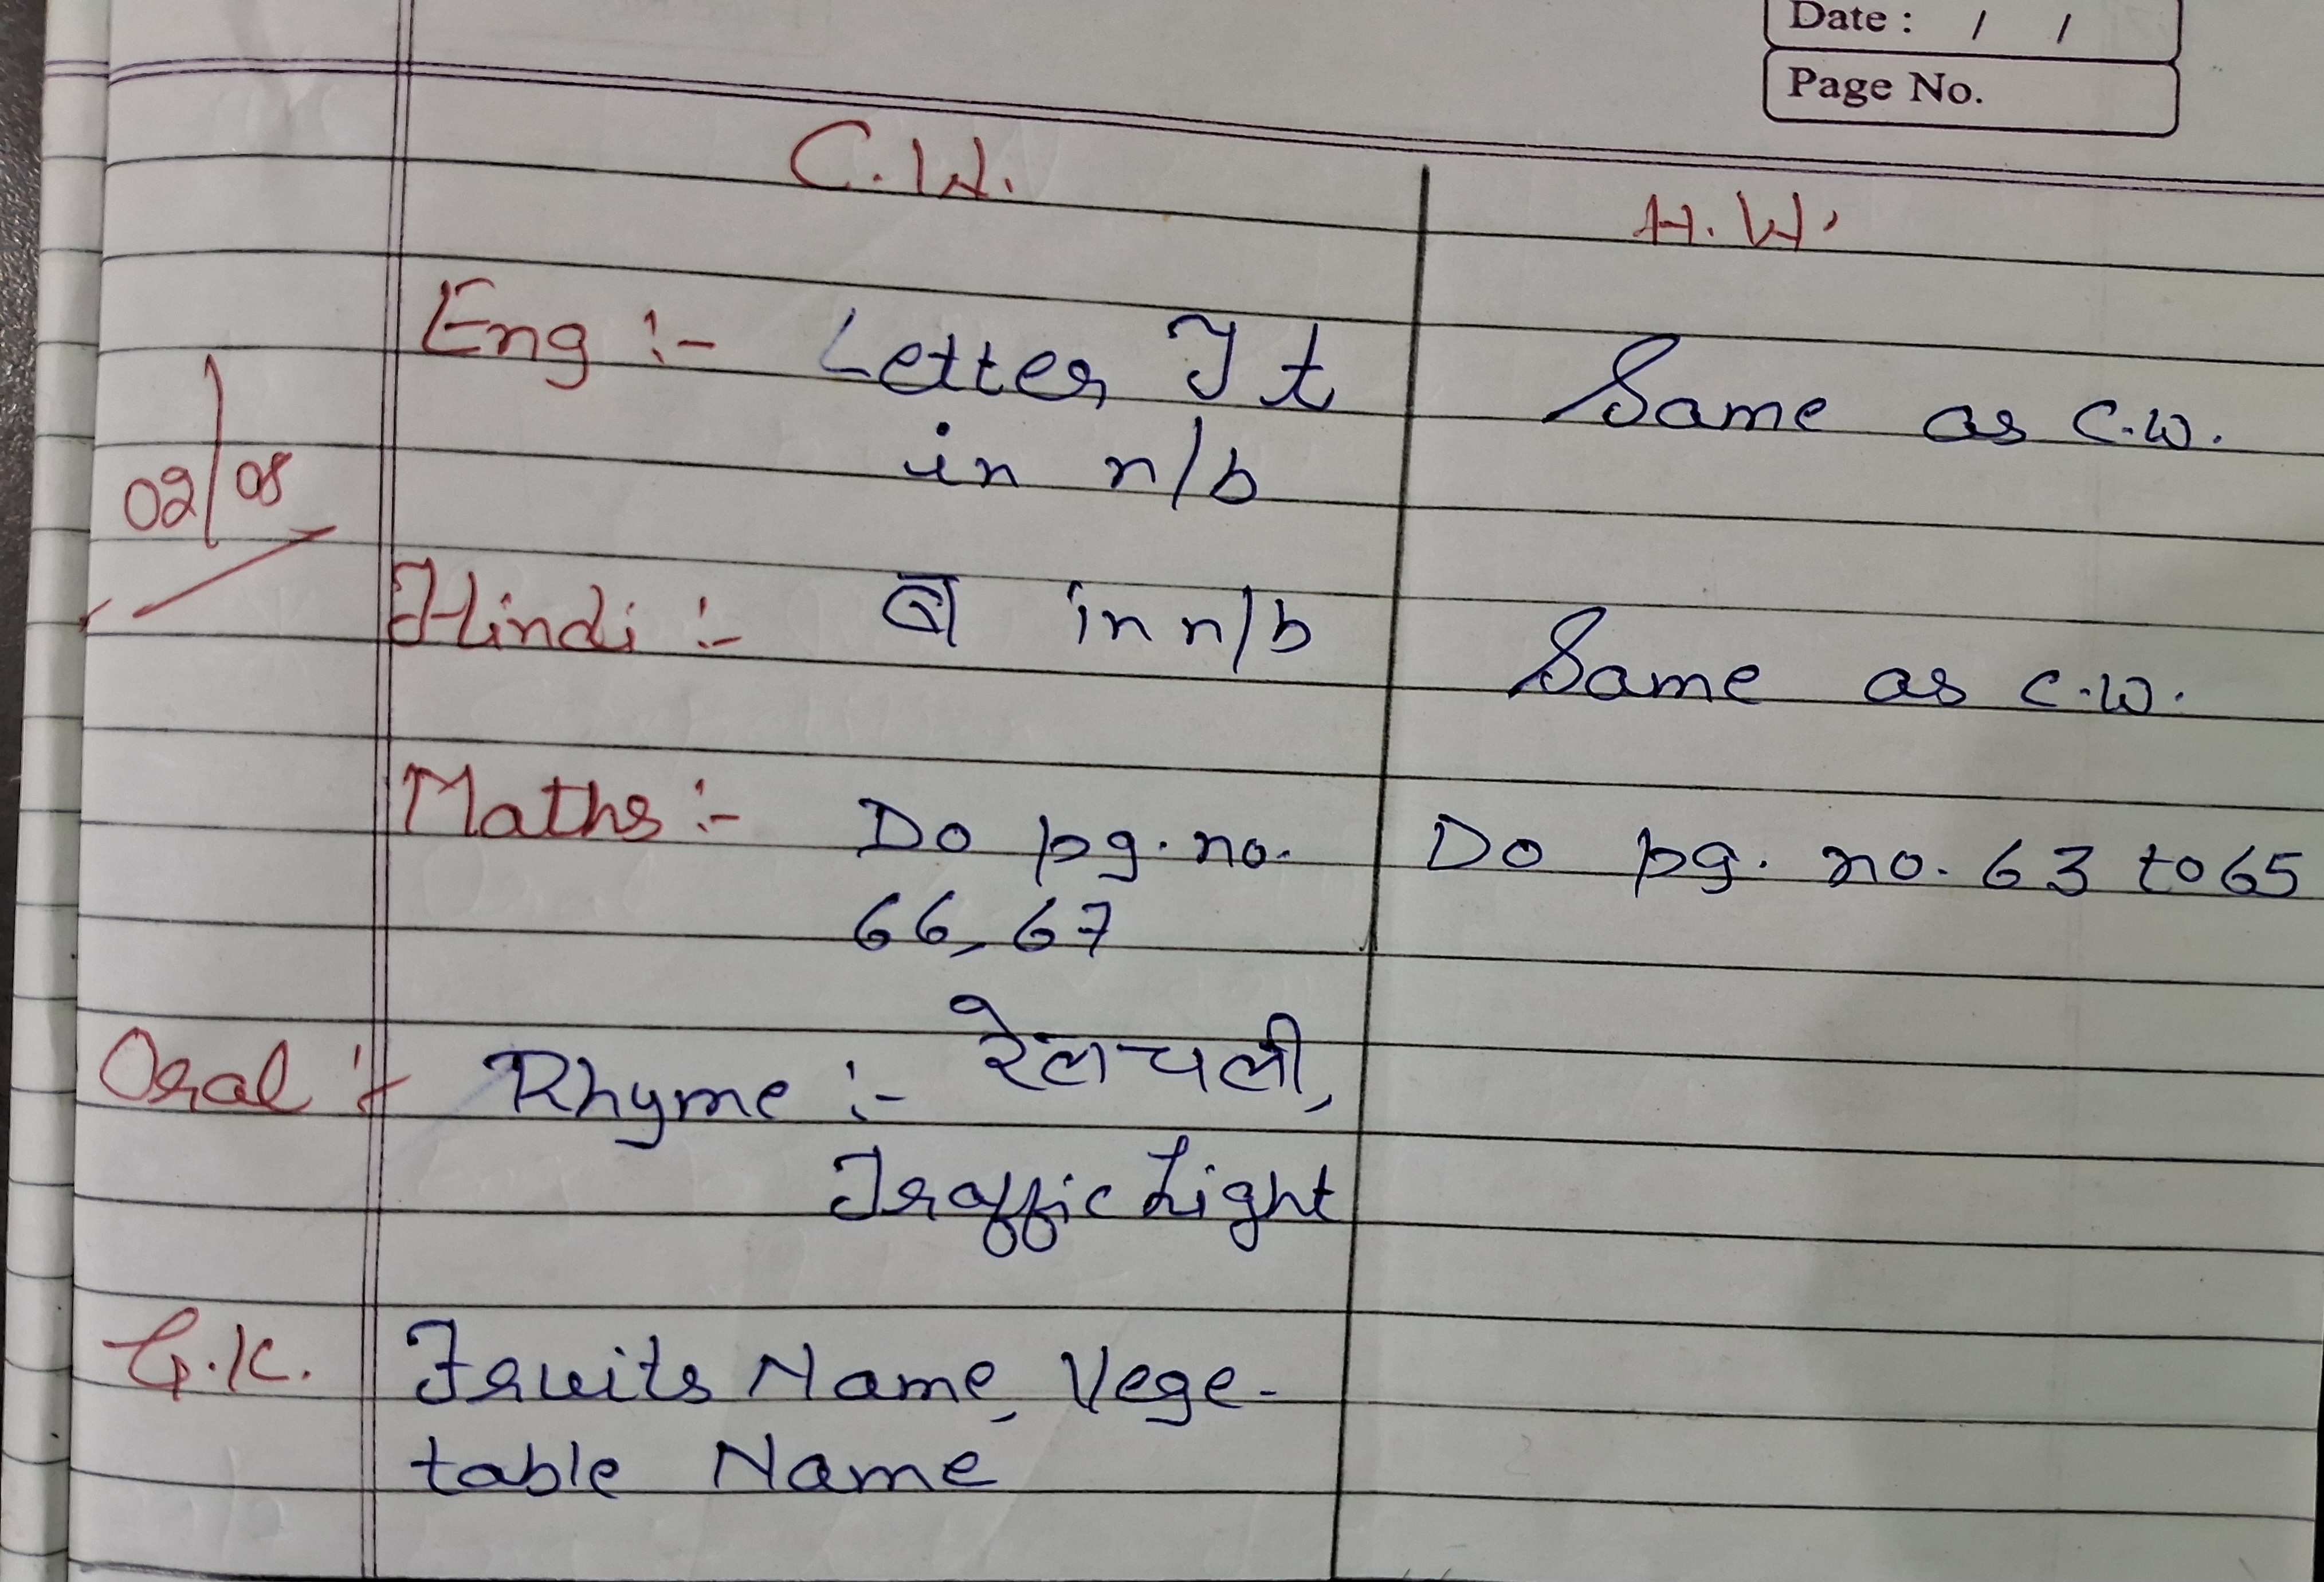 Date : / /
Page No.
C.W.
H.W.
Eng :- Letter T t
Same as C.W.
in n/b
02/08
Hindi :- ब in n/b
Same as C.W.
Maths :- Do pg. no.
Do pg. no. 63 to 65
66, 67
Oral :- Rhyme :- रेल चली,
Traffic Light
G.K. Fruits Name, Vege-
table Name